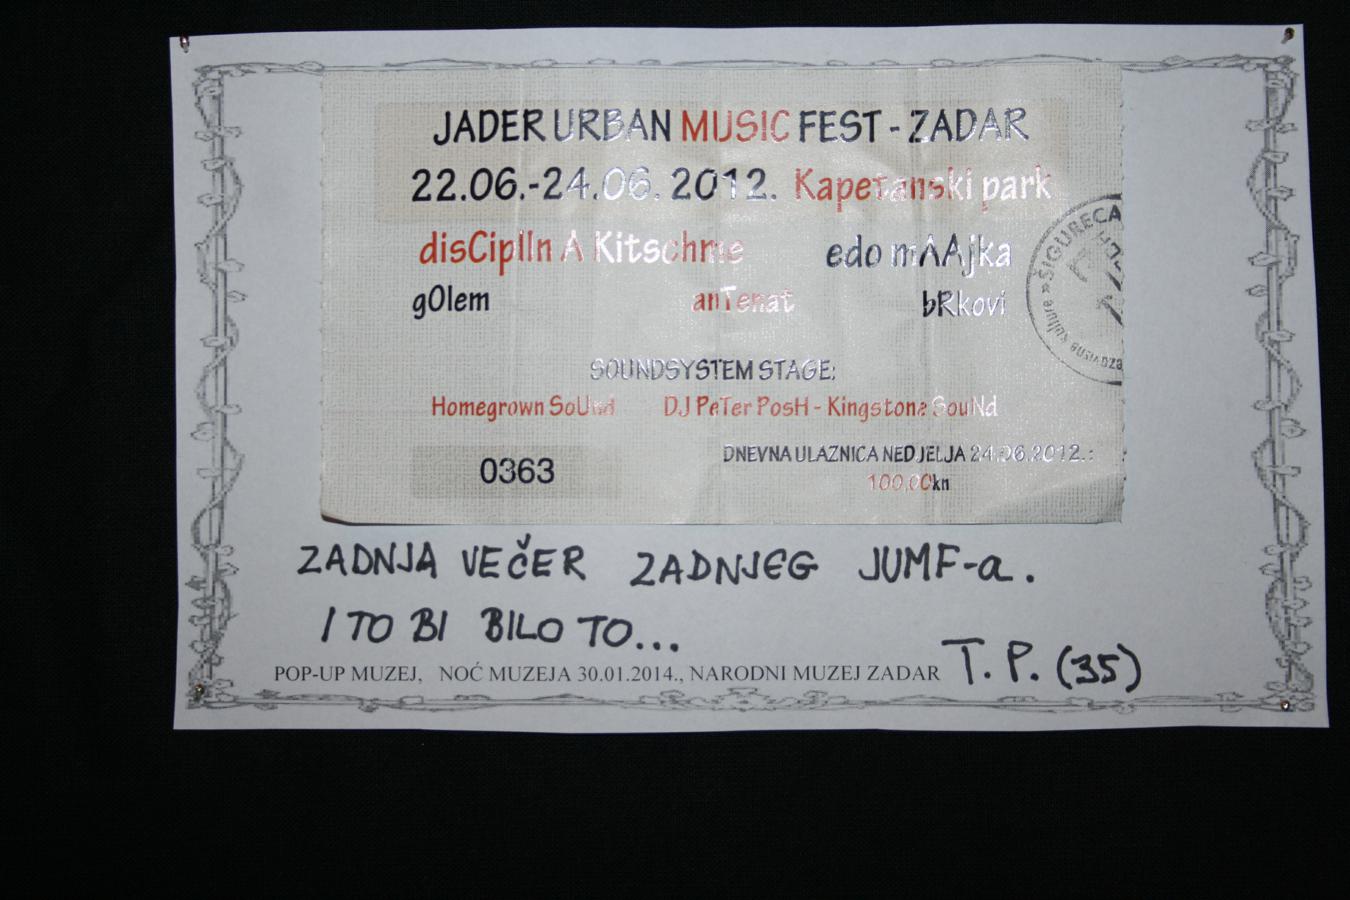 JADER URBAN MUSIC FEST - ZADAR
22.06.-24.06. 2012. Kapetanski park
disCiplIn A Kitschme edo mAAjka
gOlem anTenat bRkovi
SOUNDSYSTEM STAGE:
Homegrown SoUnd DJ PeTer PosH - Kingstone SouNd
0363
DNEVNA ULAZNICA NEDJELJA 24.06.2012.:
100,00kn
ŠIGURECA
kulture
ZADNJA VEČER ZADNJEG JUMF-a.
I TO BI BILO TO...
T. P. (35)
POP-UP MUZEJ, NOĆ MUZEJA 30.01.2014., NARODNI MUZEJ ZADAR